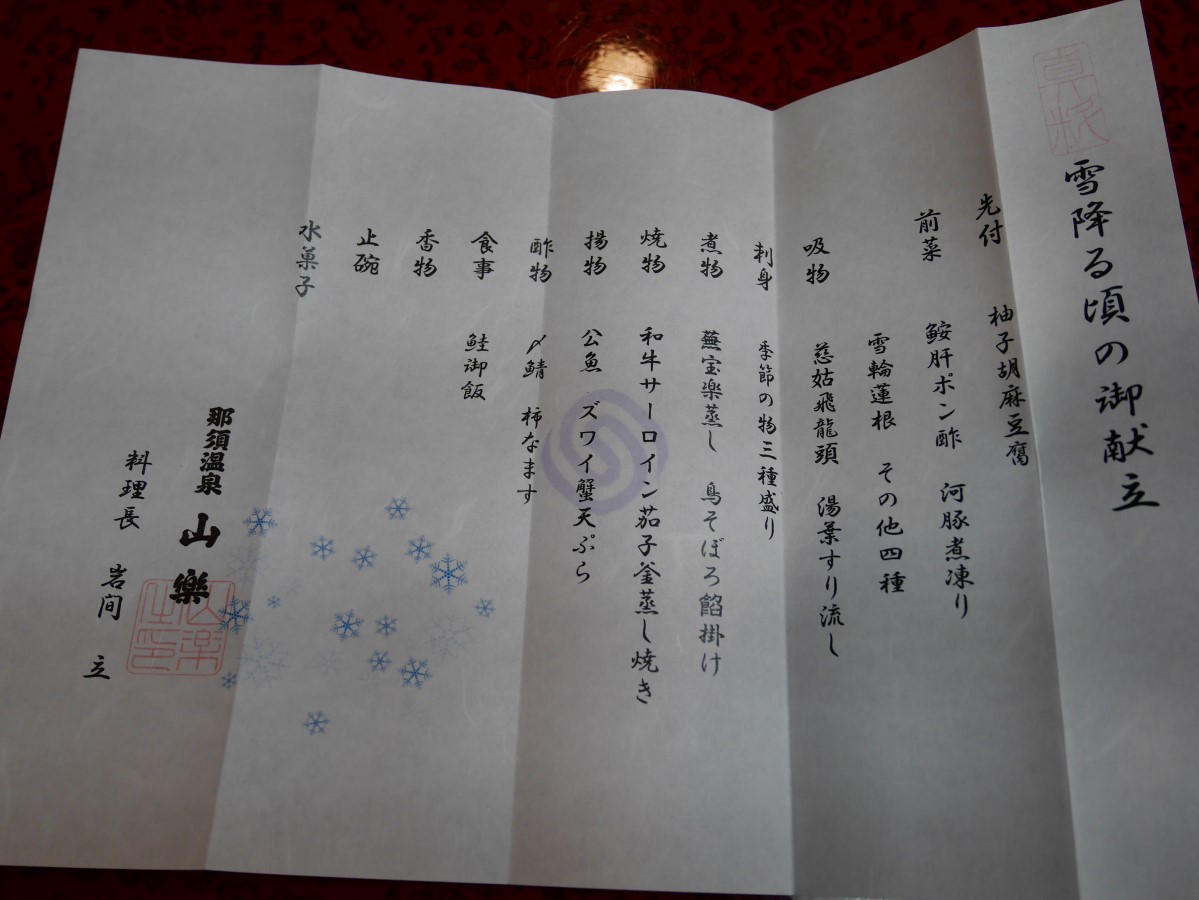 雪降る頃の御献立
先付　柚子胡麻豆腐
前菜　鮟肝ポン酢　河豚煮凍り
雪輪蓮根　その他四種
吸物　慈姑飛龍頭　湯葉すり流し
刺身　季節の物三種盛り
煮物　蕪宝楽蒸し　鳥そぼろ餡掛け
焼物　和牛サーロイン茄子釜蒸し焼き
揚物　公魚　ズワイ蟹天ぷら
酢物　〆鯖　柿なます
食事　鮭御飯
香物
止碗
水菓子
那須温泉　山樂
料理長　岩間　立